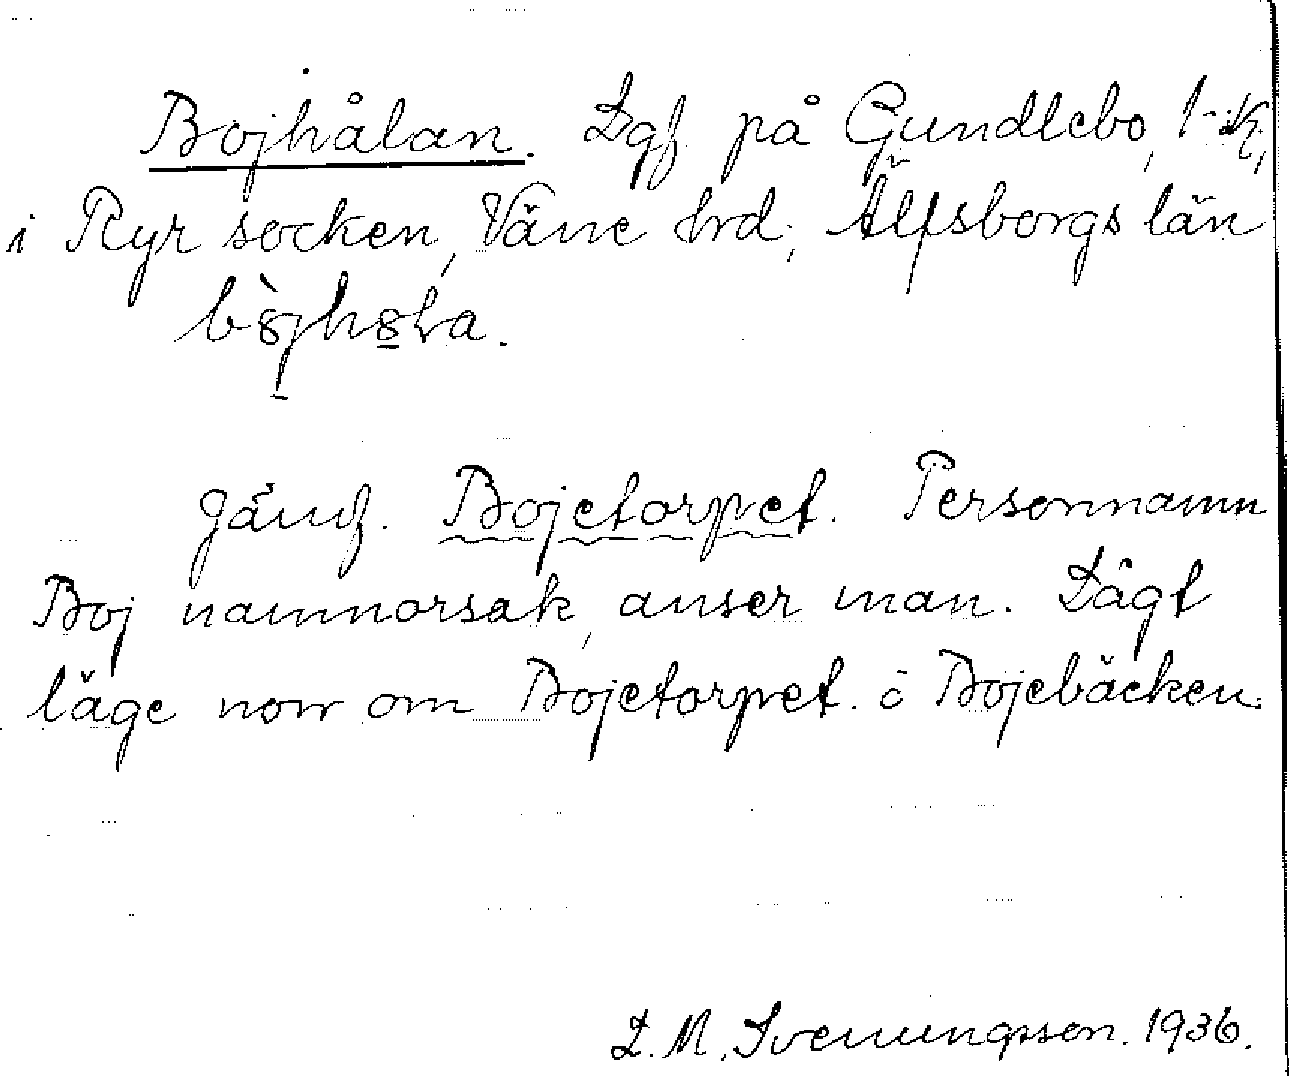 Bojhålan. Lgf på Gundlebo, 1-4,
i Ryr socken, Väne hrd, Älfsborgs län
Jämf. Bojetorpet. Personnamn
Boj namnorsak, anser man. Lågt
läge norr om Bojetorpet o Bojebäcken.
L. M. Svenungsson. 1936.